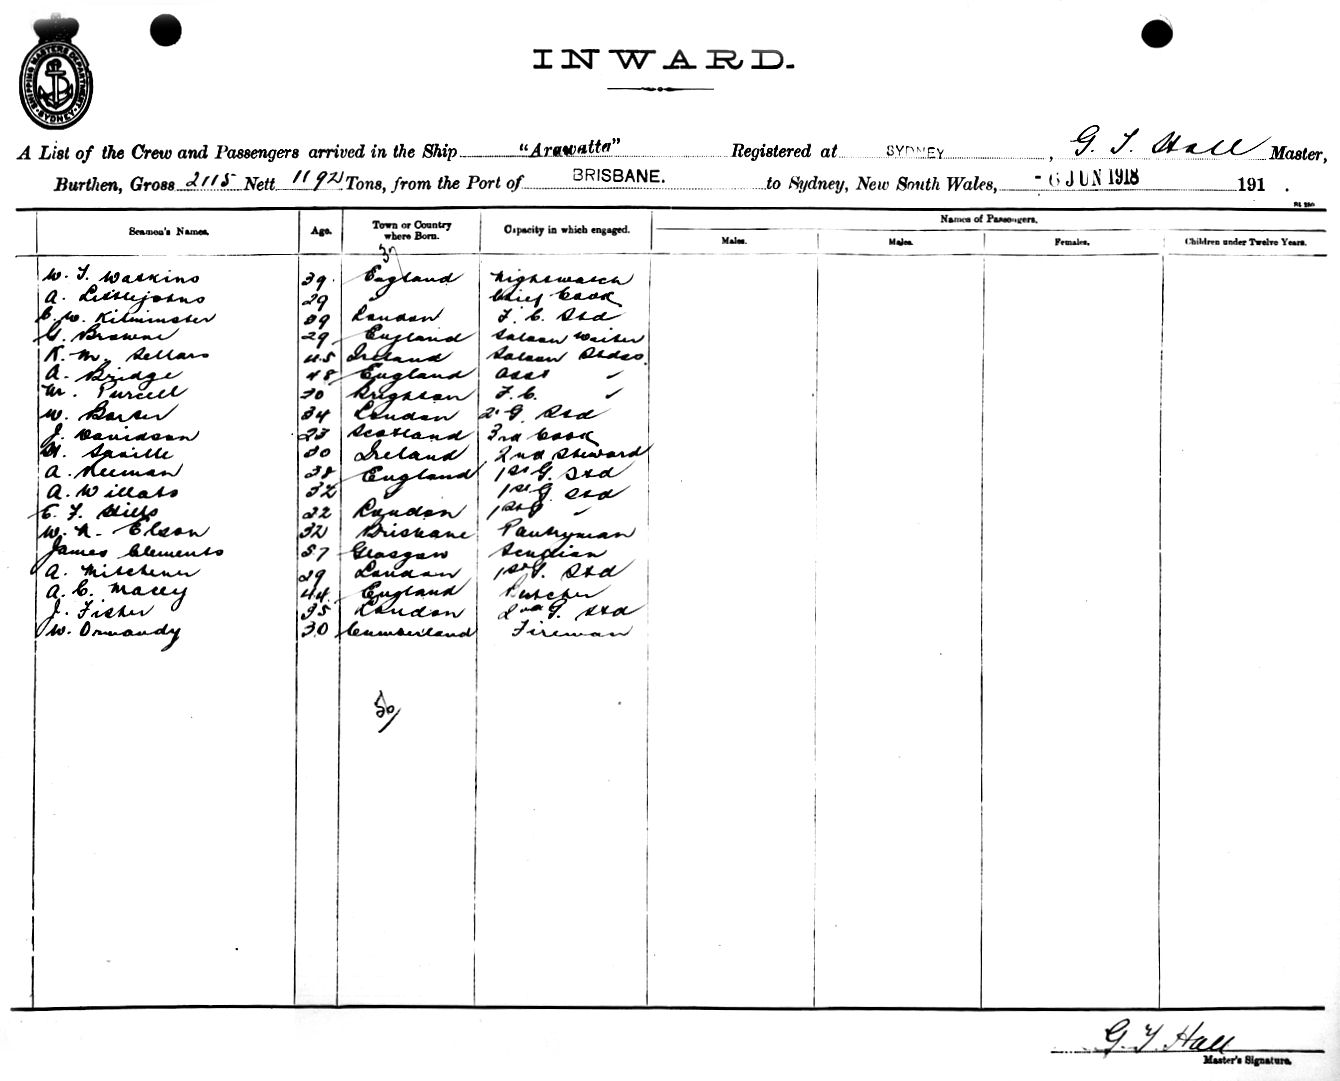 SHIPPING MASTER'S DEPARTMENT · SYDNEY ·
INWARD.
A List of the Crew and Passengers arrived in the Ship "Arawatta" Registered at SYDNEY, G. T. Hall Master,
Burthen, Gross 2115 Nett 1192 Tons, from the Port of BRISBANE. to Sydney, New South Wales, - 6 JUN 1918 191 .
Names of Passengers.
Seamen's Names. Age. Town or Country where Born. Capacity in which engaged. Males. Males. Females. Children under Twelve Years.
W. T. Watkins 39 England Nightwatch
A. Littlejohns 29 " Chief Cook
C. W. Kilminster 39 London F. C. Std
G. Browne 29 England Saloon Waiter
K. M. Sellars 45 Ireland Saloon Stdss
A. Bridge 48 England Asst "
M. Purcell 30 Brighton F. C. "
W. Barker 34 London 2 G. Std
J. Davidson 23 Scotland 3rd Cook
Saville 30 Ireland 2nd Steward
A. Neeman 38 England 1st G. Std
A. Willats 32 1st G. Std
C. F. Hills 22 London 1st G "
W. N. Elson 32 Brisbane Pantryman
James Clements 57 Glasgow Scullian
A. Mitchener 29 London Std
A. C. Macey 44 England Butcher
J. Fisher 35 London 2nd G. Std
W. Ormandy 30 Cumberland Fireman
G. T. Hall
Master's Signature.